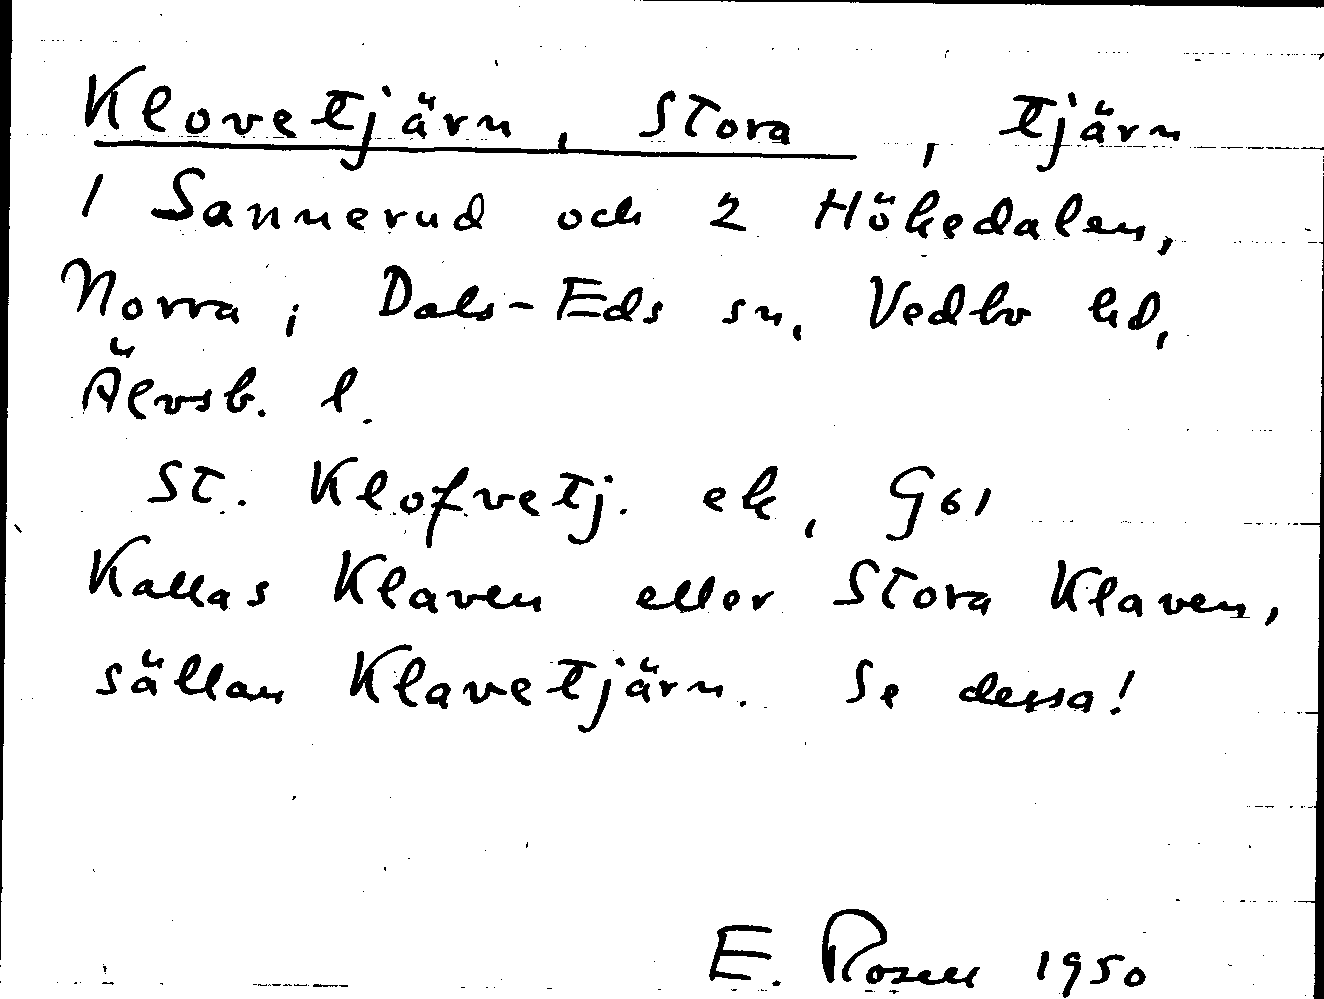 Klovetjärn, Stora, tjärn
1 Sannerud och 2 Hökedalen,
Norra i Dals-Eds sn, Vedbo hd,
Älvsb. l.
St. Klofvetj. ek, G61
Kallas Klaven eller Stora Klaven,
sällan Klavetjärn. Se dessa!
E. Rosell 1950